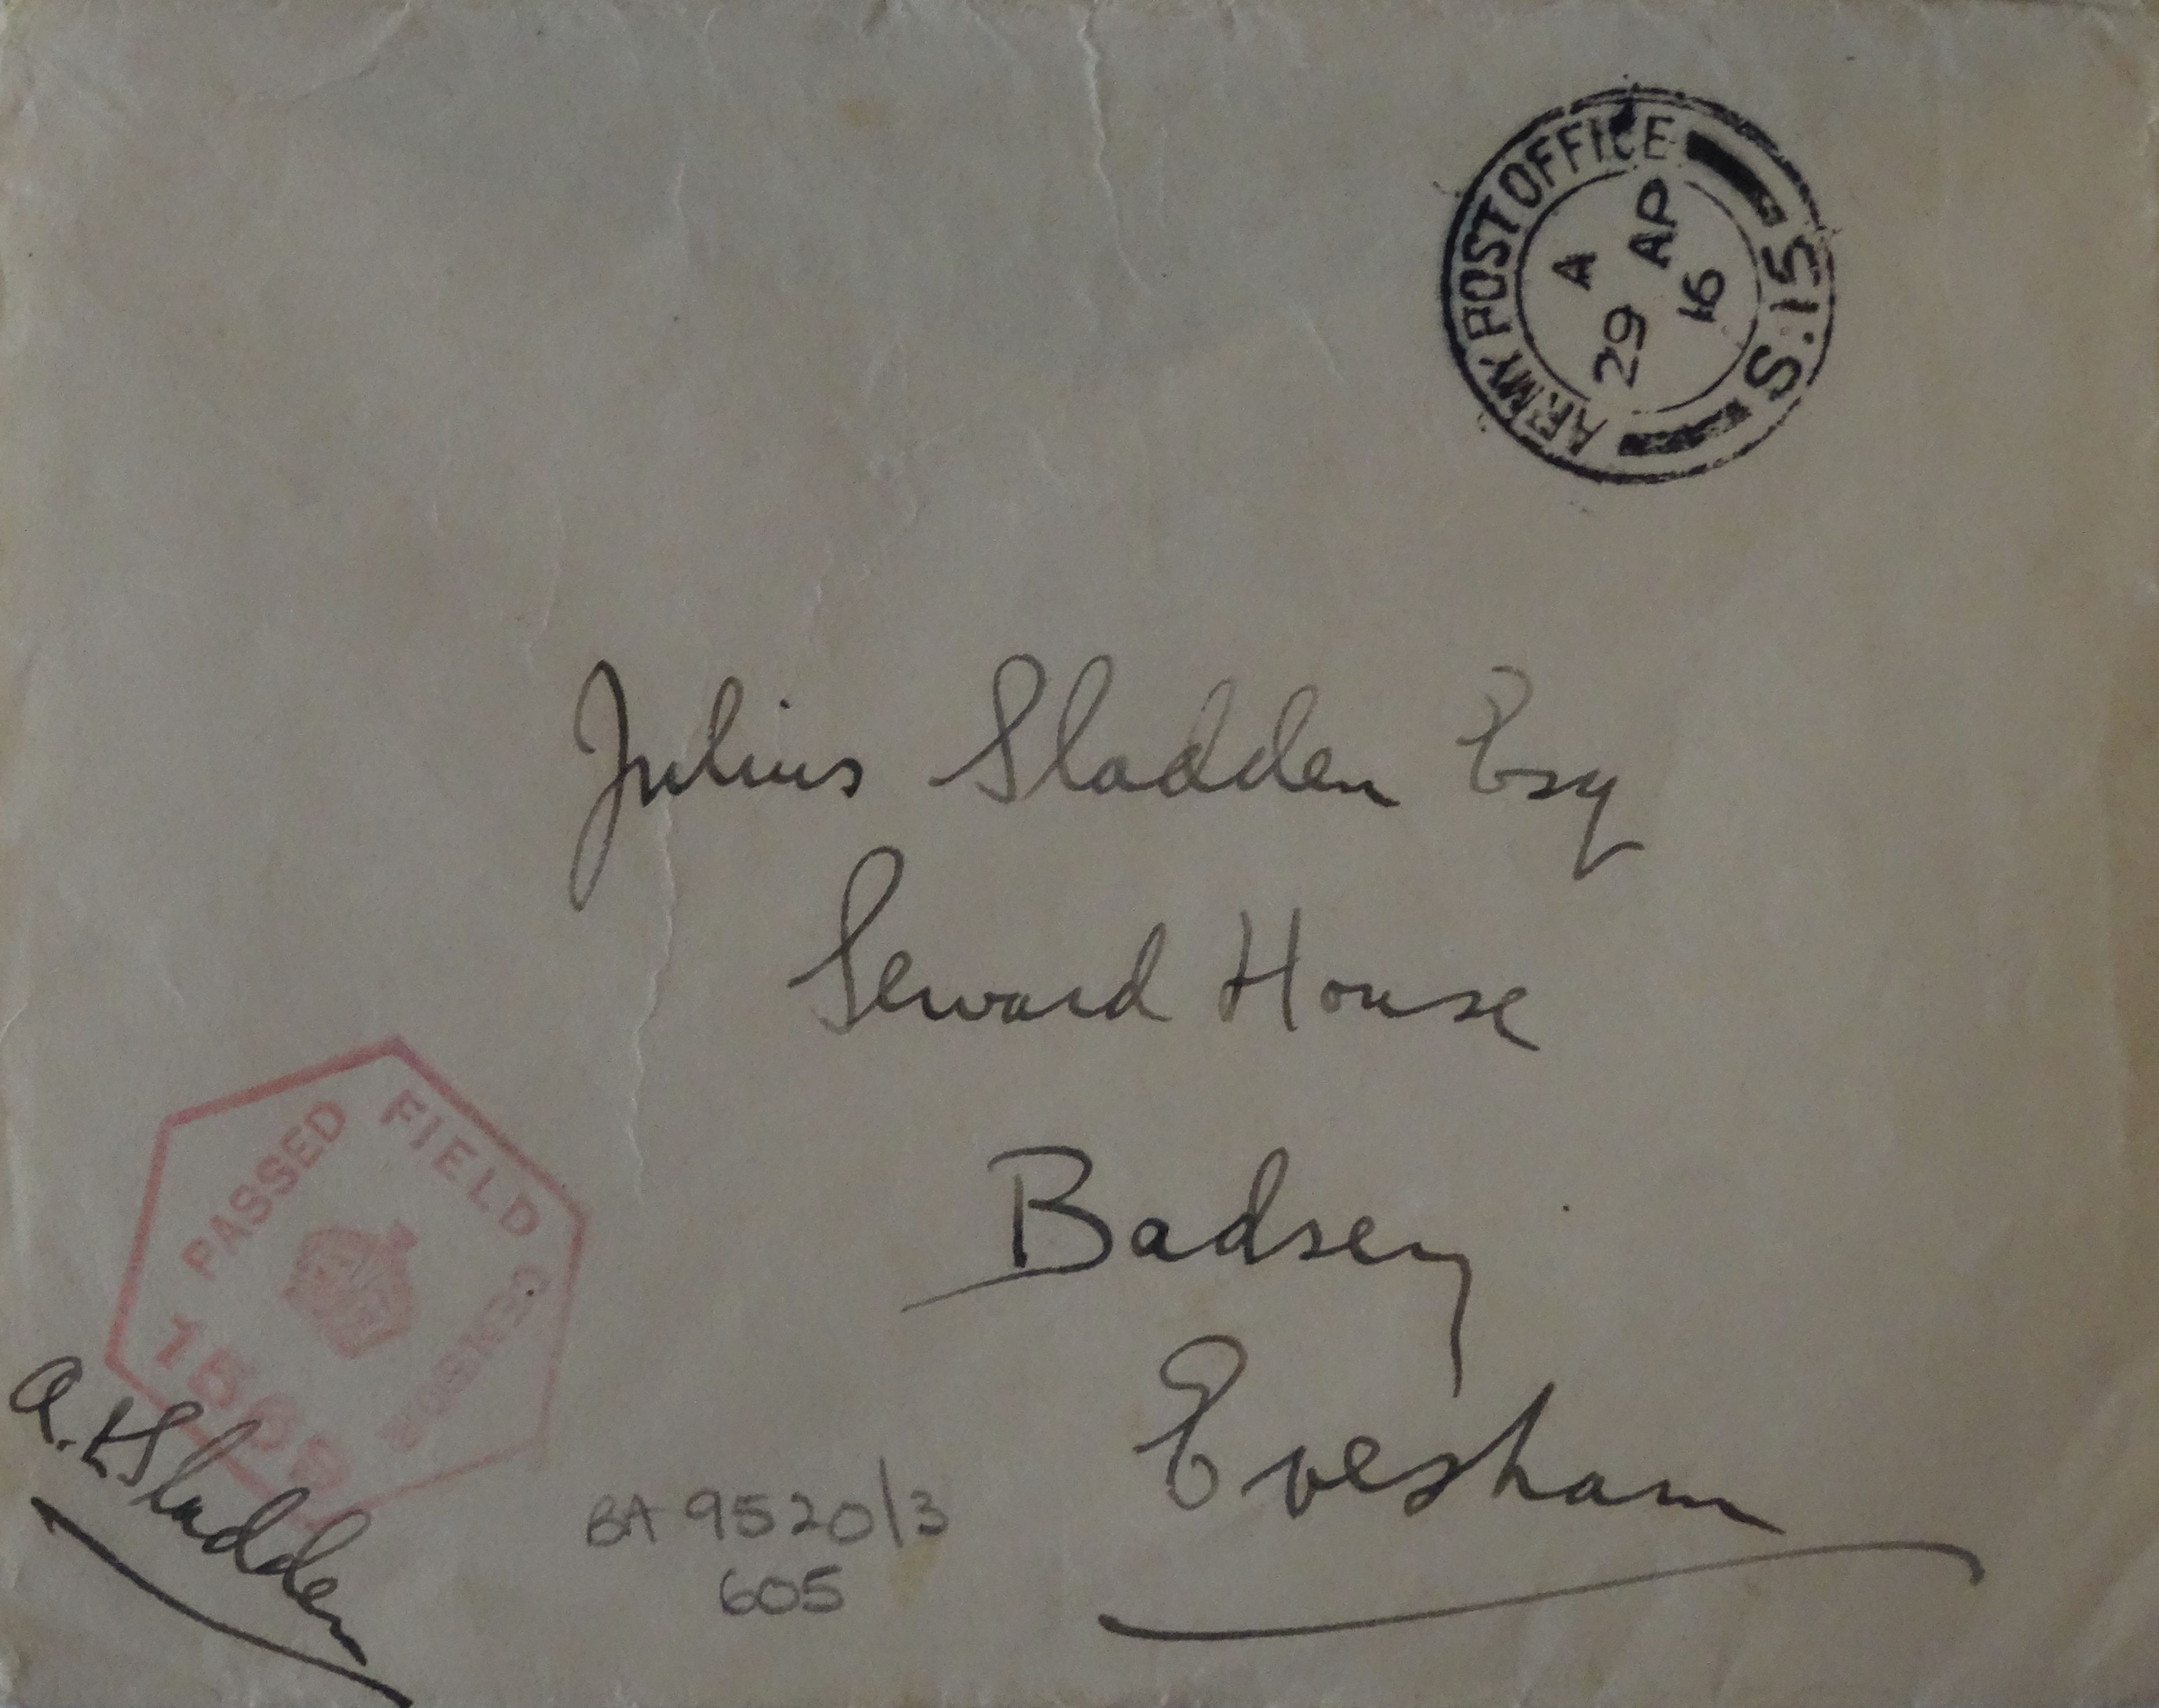 ARMY POST OFFICE
A
29 AP
16
S.15
Julius Sladden Esq
Seward House
Badsey
Evesham
PASSED FIELD CENSOR
A.H Sladden
BA 9520/3
605